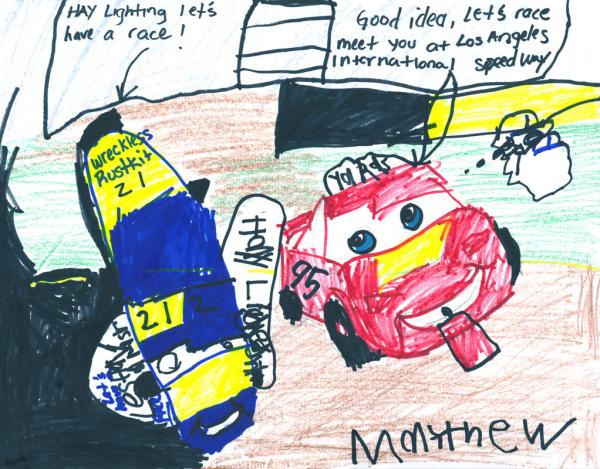 HAY Lighting let's
have a race!
Good idea, Let's race
meet you at Los Angeles
International speedway
Wreckless
Rustkit
21
21 2
HAY L
95
Matthew